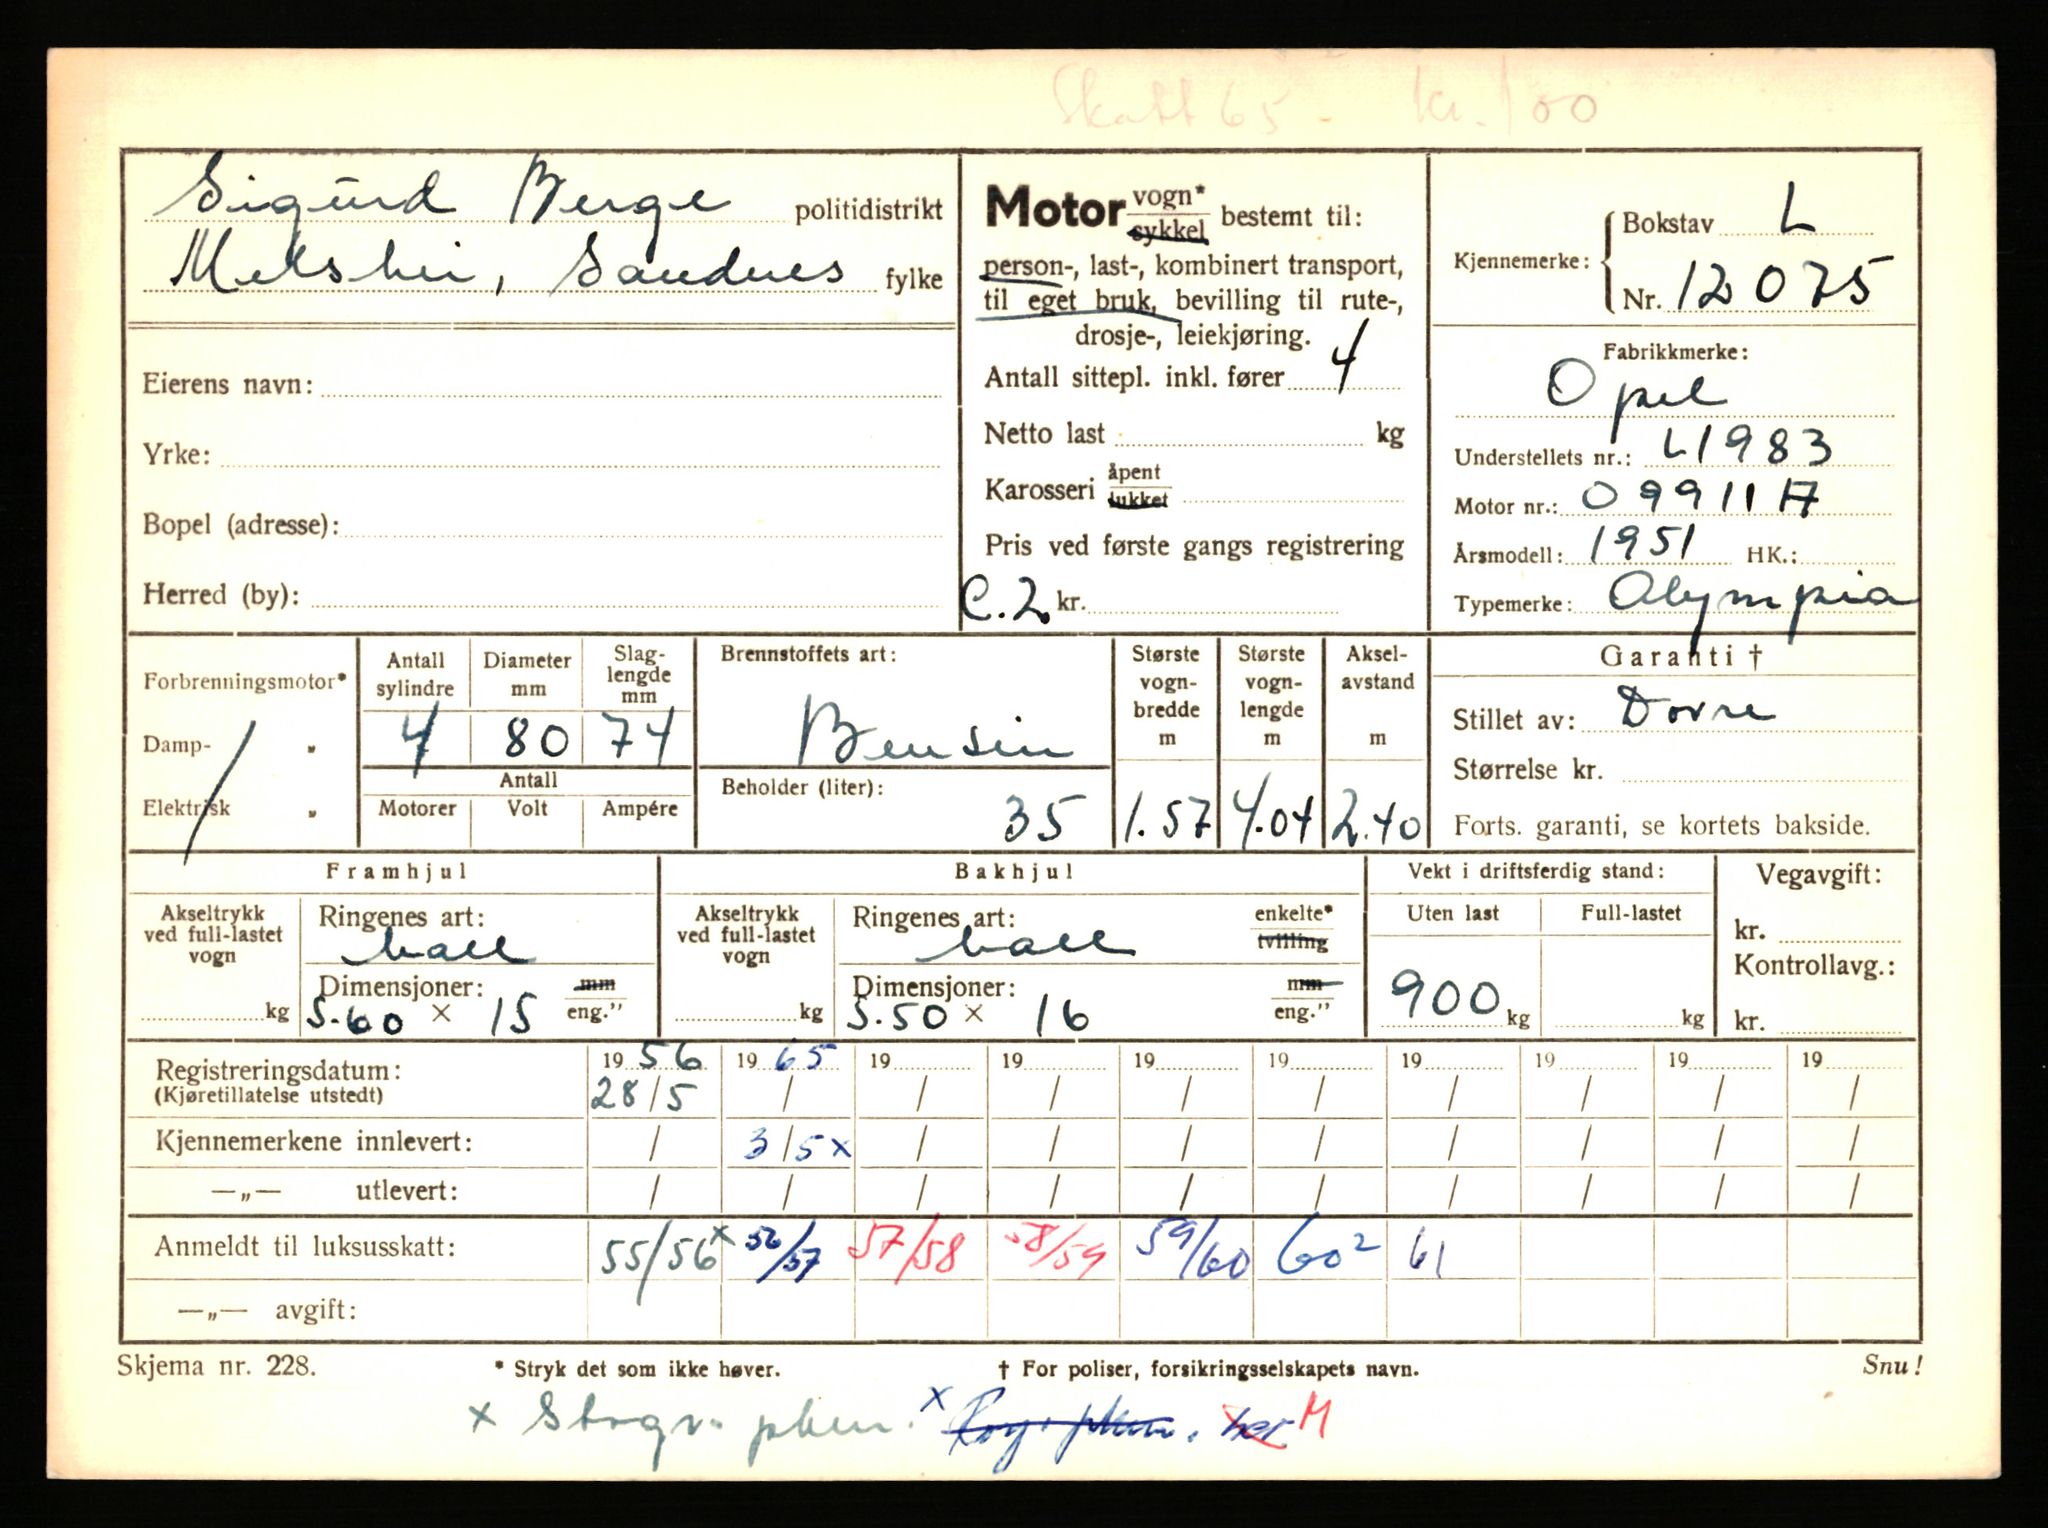 Skatt 65 - kr. 100
Sigurd Berge politidistrikt
Melshei, Sandnes fylke
Eierens navn:
Yrke:
Bopel (adresse):
Herred (by):
Motor vogn* sykkel bestemt til:
person-, last-, kombinert transport,
til eget bruk, bevilling til rute-,
drosje-, leiekjøring.
Antall sittepl. inkl. fører 4
Netto last kg
Karosseri åpent lukket
Pris ved første gangs registrering
C.2. kr.
Kjennemerke: Bokstav L
Nr. 12075
Fabrikkmerke:
Opel
Understellets nr.: L1983
Motor nr.: 0991117
Årsmodell: 1951 HK.:
Typemerke: Olympia
Forbrenningsmotor*
Damp- "
Elektrisk "
Antall sylindre Diameter mm Slag-lengde mm
4 80 74
Antall
Motorer Volt Ampére
Brennstoffets art:
Bensin
Beholder (liter):
35
Største vogn-bredde m Største vogn-lengde m Aksel-avstand m
1.57 4.04 2.40
Garanti †
Stillet av: Dovre
Størrelse kr.
Forts. garanti, se kortets bakside.
Framhjul
Akseltrykk ved full-lastet vogn
kg
Ringenes art:
ball
Dimensjoner: mm
5.60 × 15 eng."
Bakhjul
Akseltrykk ved full-lastet vogn
kg
Ringenes art: enkelte*
ball tvilling
Dimensjoner: mm
5.50 × 16 eng."
Vekt i driftsferdig stand:
Uten last Full-lastet
900 kg kg
Vegavgift:
kr.
Kontrollavg.:
kr.
Registreringsdatum: 1956 1965 19 19 19 19 19 19 19 19
(Kjøretillatelse utstedt) 28/5 / / / / / / / / /
Kjennemerkene innlevert: / 3/5x / / / / / / / /
—„— utlevert: / / / / / / / / / /
Anmeldt til luksusskatt: 55/56x 56/57 57/58 58/59 59/60 60² 61
—„— avgift:
Skjema nr. 228. * Stryk det som ikke høver. † For poliser, forsikringsselskapets navn. Snu!
x x M